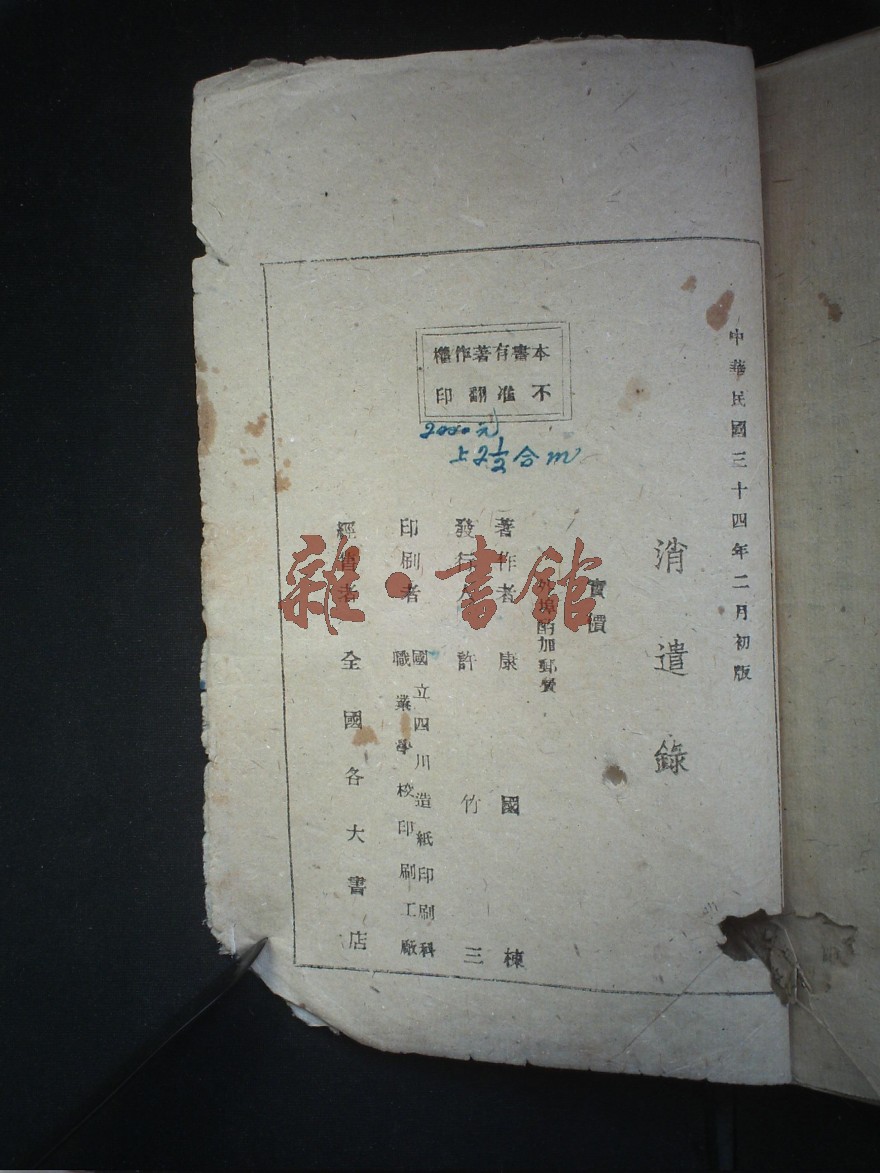 中華民國三十四年二月初版
消遣錄
實價
外埠酌加郵費
著作者 康國棟
發行人 許竹三
印刷者 國立四川造紙印刷科
職業學校印刷工廠
經售者 全國各大書店
本書有著作權
不准翻印
2000元
上2½合m
雜·書館